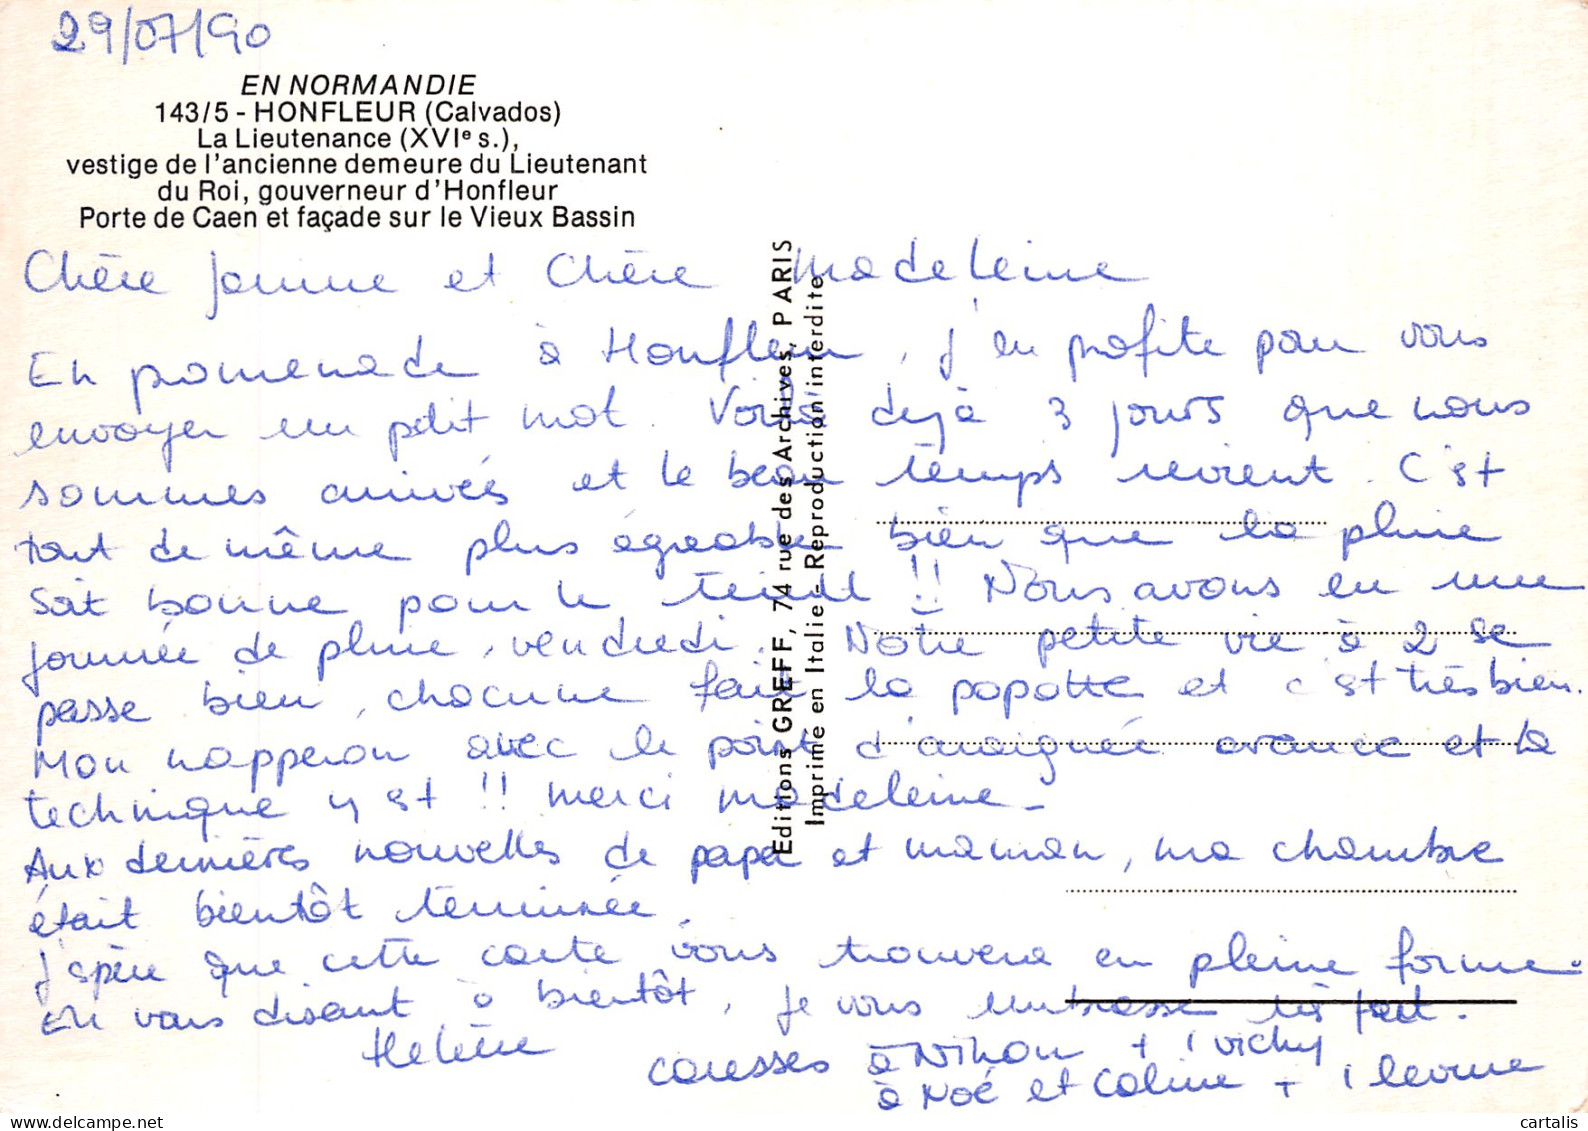 29/07/90
EN NORMANDIE
143/5 - HONFLEUR (Calvados)
La Lieutenance (XVIe s.),
vestige de l'ancienne demeure du Lieutenant
du Roi, gouverneur d'Honfleur
Porte de Caen et façade sur le Vieux Bassin
Chère Janine et Chère Madeleine
En promenade à Honfleur, j'en profite pour vous
envoyer un petit mot. Voilà dejà 3 jours que nous
sommes arrivés et le beau temps revient. C'est
tout de même plus agréable bien que la pluie
soit bonne pour le teint !! Nous avons eu une
journée de pluie, vendredi. Notre petite vie à 2 se
passe bien, chacune fait la popotte et c'est très bien.
Mon napperon avec le point d'araignée avance et la
technique y est !! merci Madeleine -
Aux dernières nouvelles de papa et maman, ma chambre
était bientôt terminée.
J'spère que cette carte vous trouvera en pleine forme.
En vous disant à bientôt, je vous embrasse très fort.
Hélène
caresses à Nihon + 1 vichy
à Noé et Caline + 1
Editions GREFF, 74 rue des Archives, PARIS
Imprimé en Italie - Reproduction interdite
cartalis